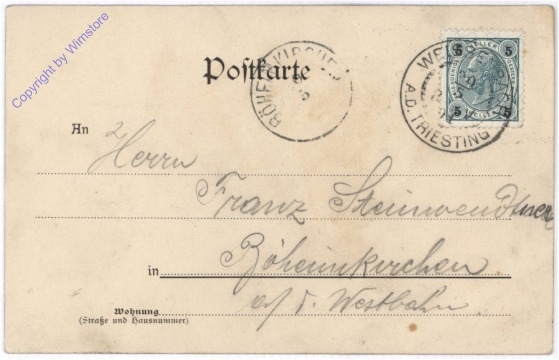 Copyright by Wimstore
Postkarte
BÖHEIMKIRCHEN
5
5 5
5 5
A.D. TRIESTING
An
Herrn
Franz Steinwendtner
in Böheimkirchen
a/ d. Westbahn
Wohnung
(Straße und Hausnummer)